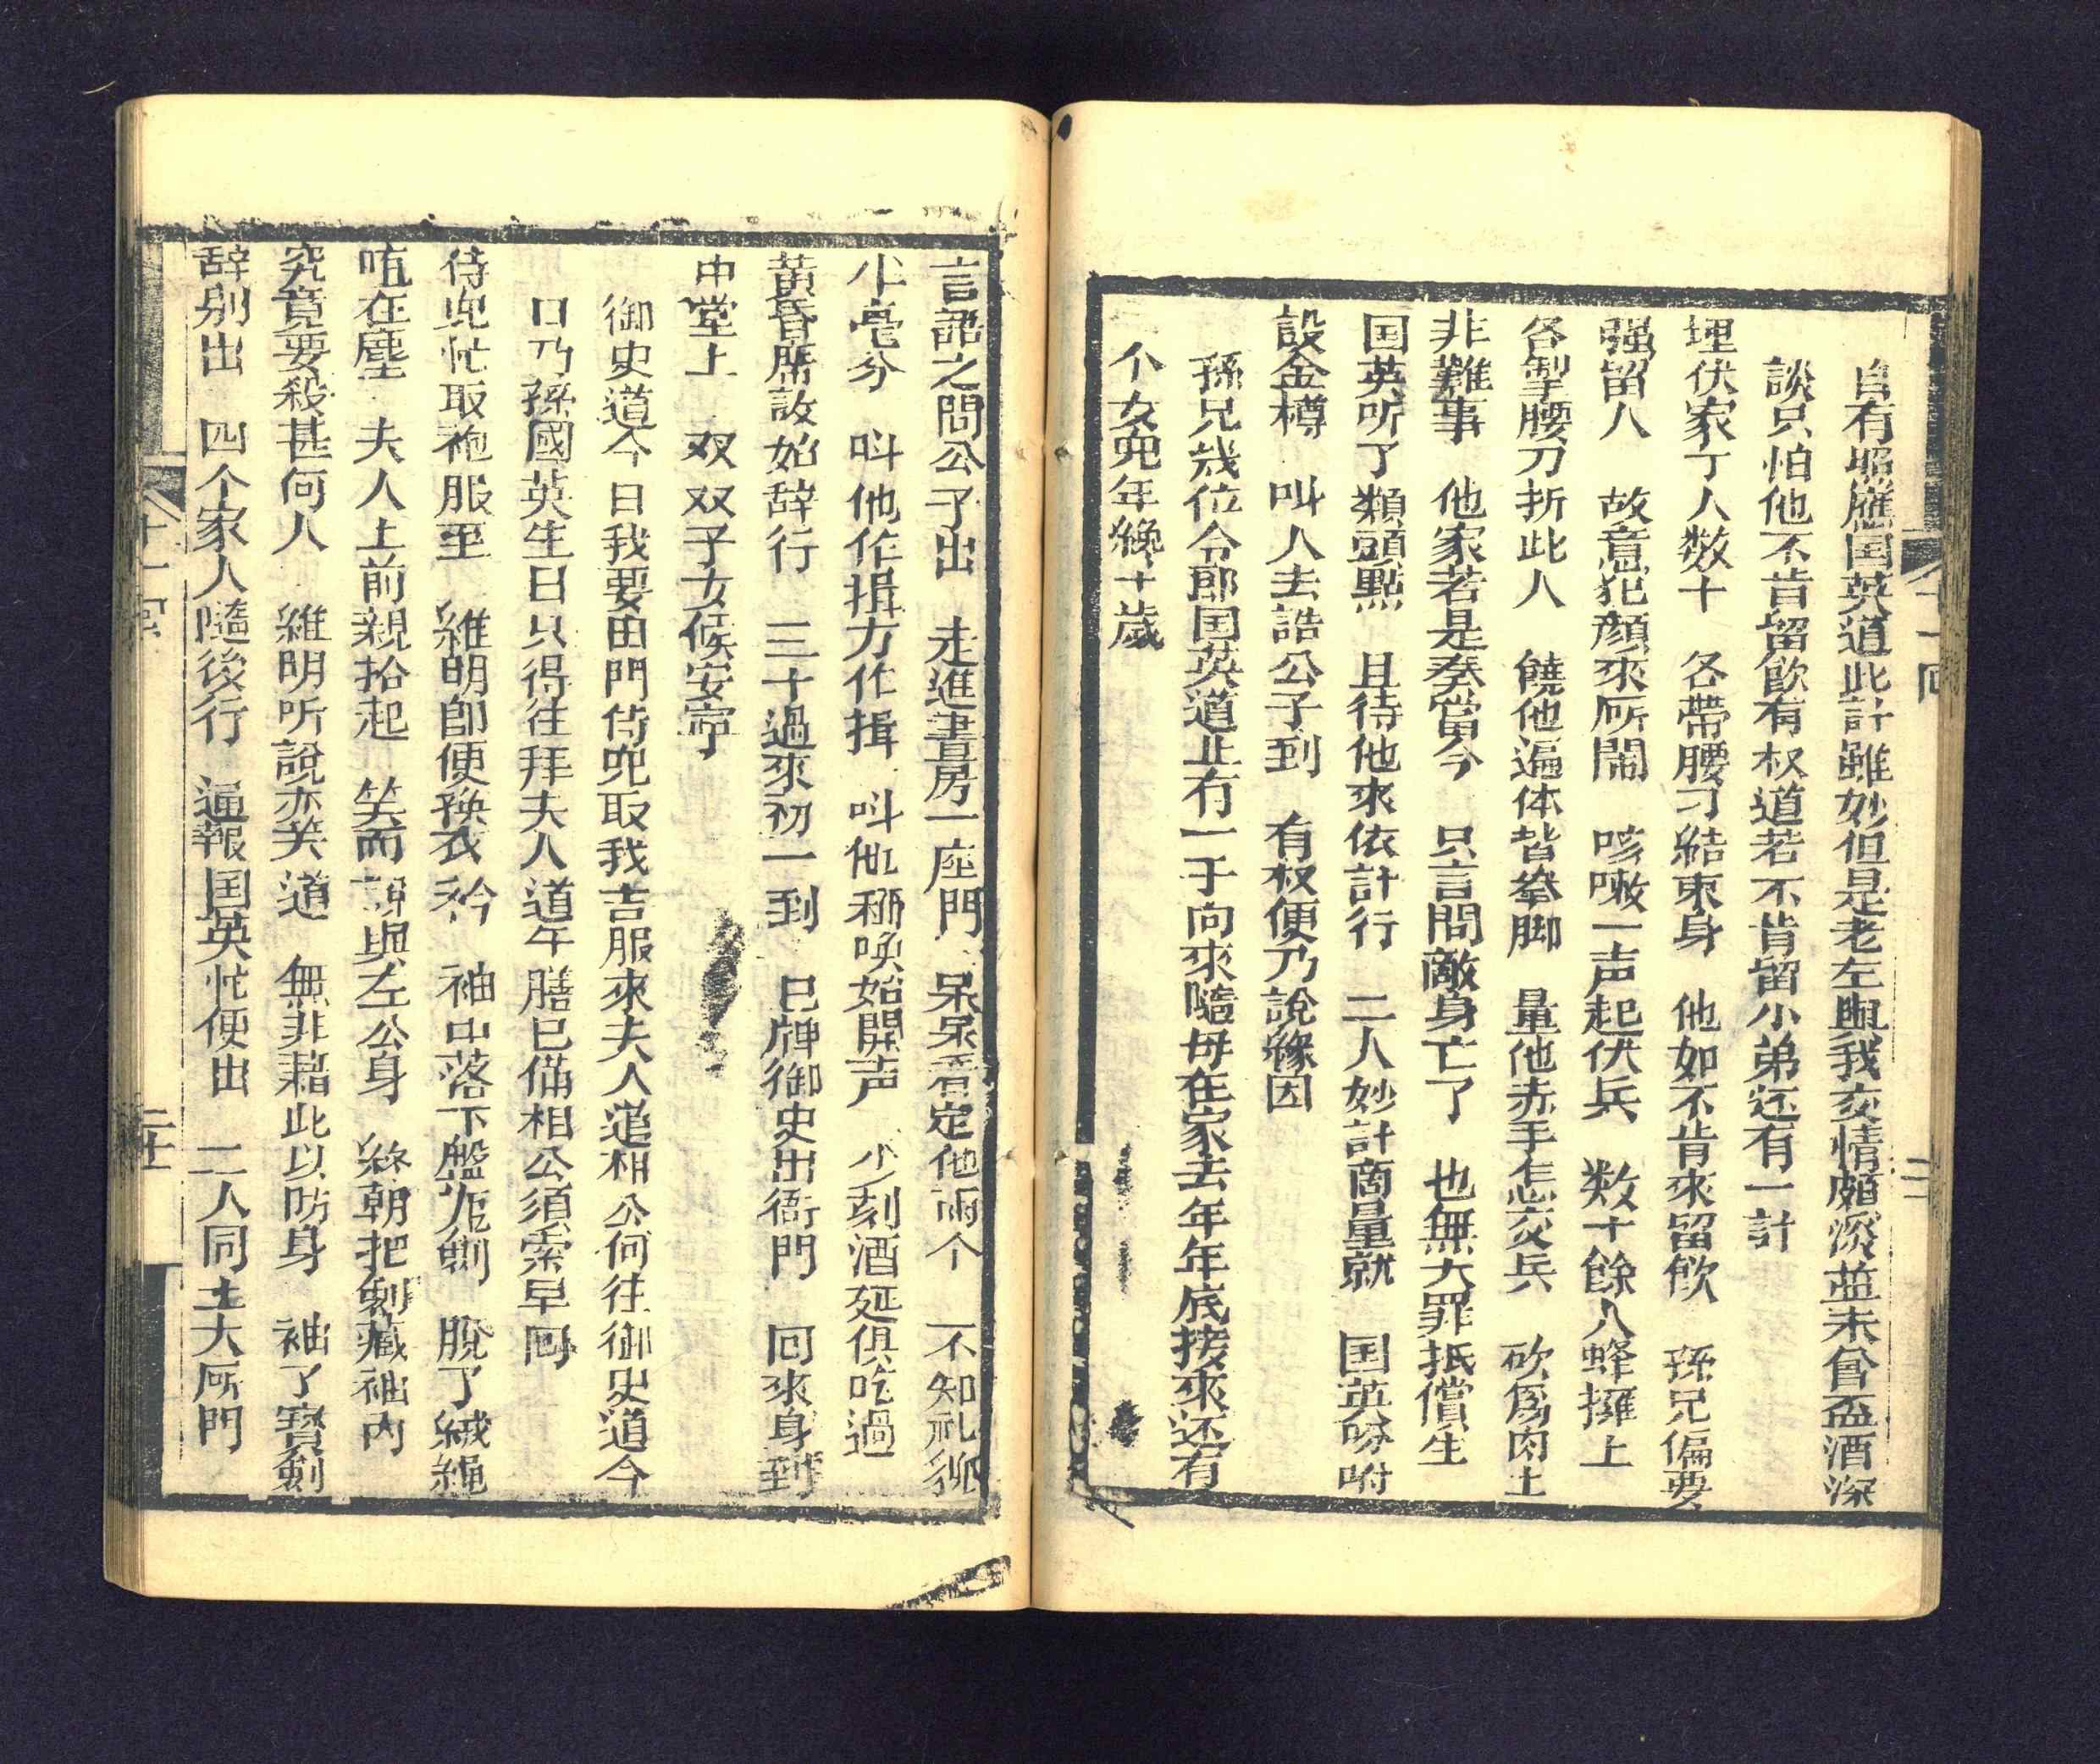 自有照應国英道此計雖妙但是老左與我交情頗淡並未曾盃酒深
談只怕他不肯留飲有权道若不肯留小弟还有一計
埋伏家丁人数十　各帶腰刁結束身　他如不肯來留飲　孫兄偏要
强留人　故意犯顏來厮鬧　咳嗽一声起伏兵　数十餘人蜂擁上
各掣腰刀折此人　饒他遍体皆拳脚　量他赤手怎交兵　砍爲肉土
非難事　他家若是奏當今　只言間敵身亡了　也無大罪抵償生
国英听了類頭點　且待他來依計行　二人妙計商量就　国英吩咐
設金樽　叫人去請公子到　有权便乃說緣因
孫兄幾位令郎国英道止有一子向來隨母在家去年年底接來还有
个女兒年纔十歲
言語之間公子出　走進書房一座門　呆呆看定他兩个　不知礼
半毫分　叫他作揖方作揖　叫他稱喚始開声　少刻酒延俱吃過
黃昏席散始辞行　三十過來初一到　巳牌御史出衙門　回來身到
中堂上　双双子女候安寧
御史道今日我要出門侍兒取我吉服來夫人道相公何往御史道今
日乃孫國英生日只得往拜夫人道午膳已俻相公須索早回
侍兒忙取袍服至　維明卽便換衣衿　袖中落下盤龙劍　脫了絨繩
吼在塵　夫人上前親拾起　笑而　與左公身　終朝把劍藏袖內
究竟要殺甚何人　維明听說亦笑道　無非藉此以防身　袖了寶劍
辞别出　四个家人隨後行　通報国英忙便出　二人同至大厮門
十一回
二十